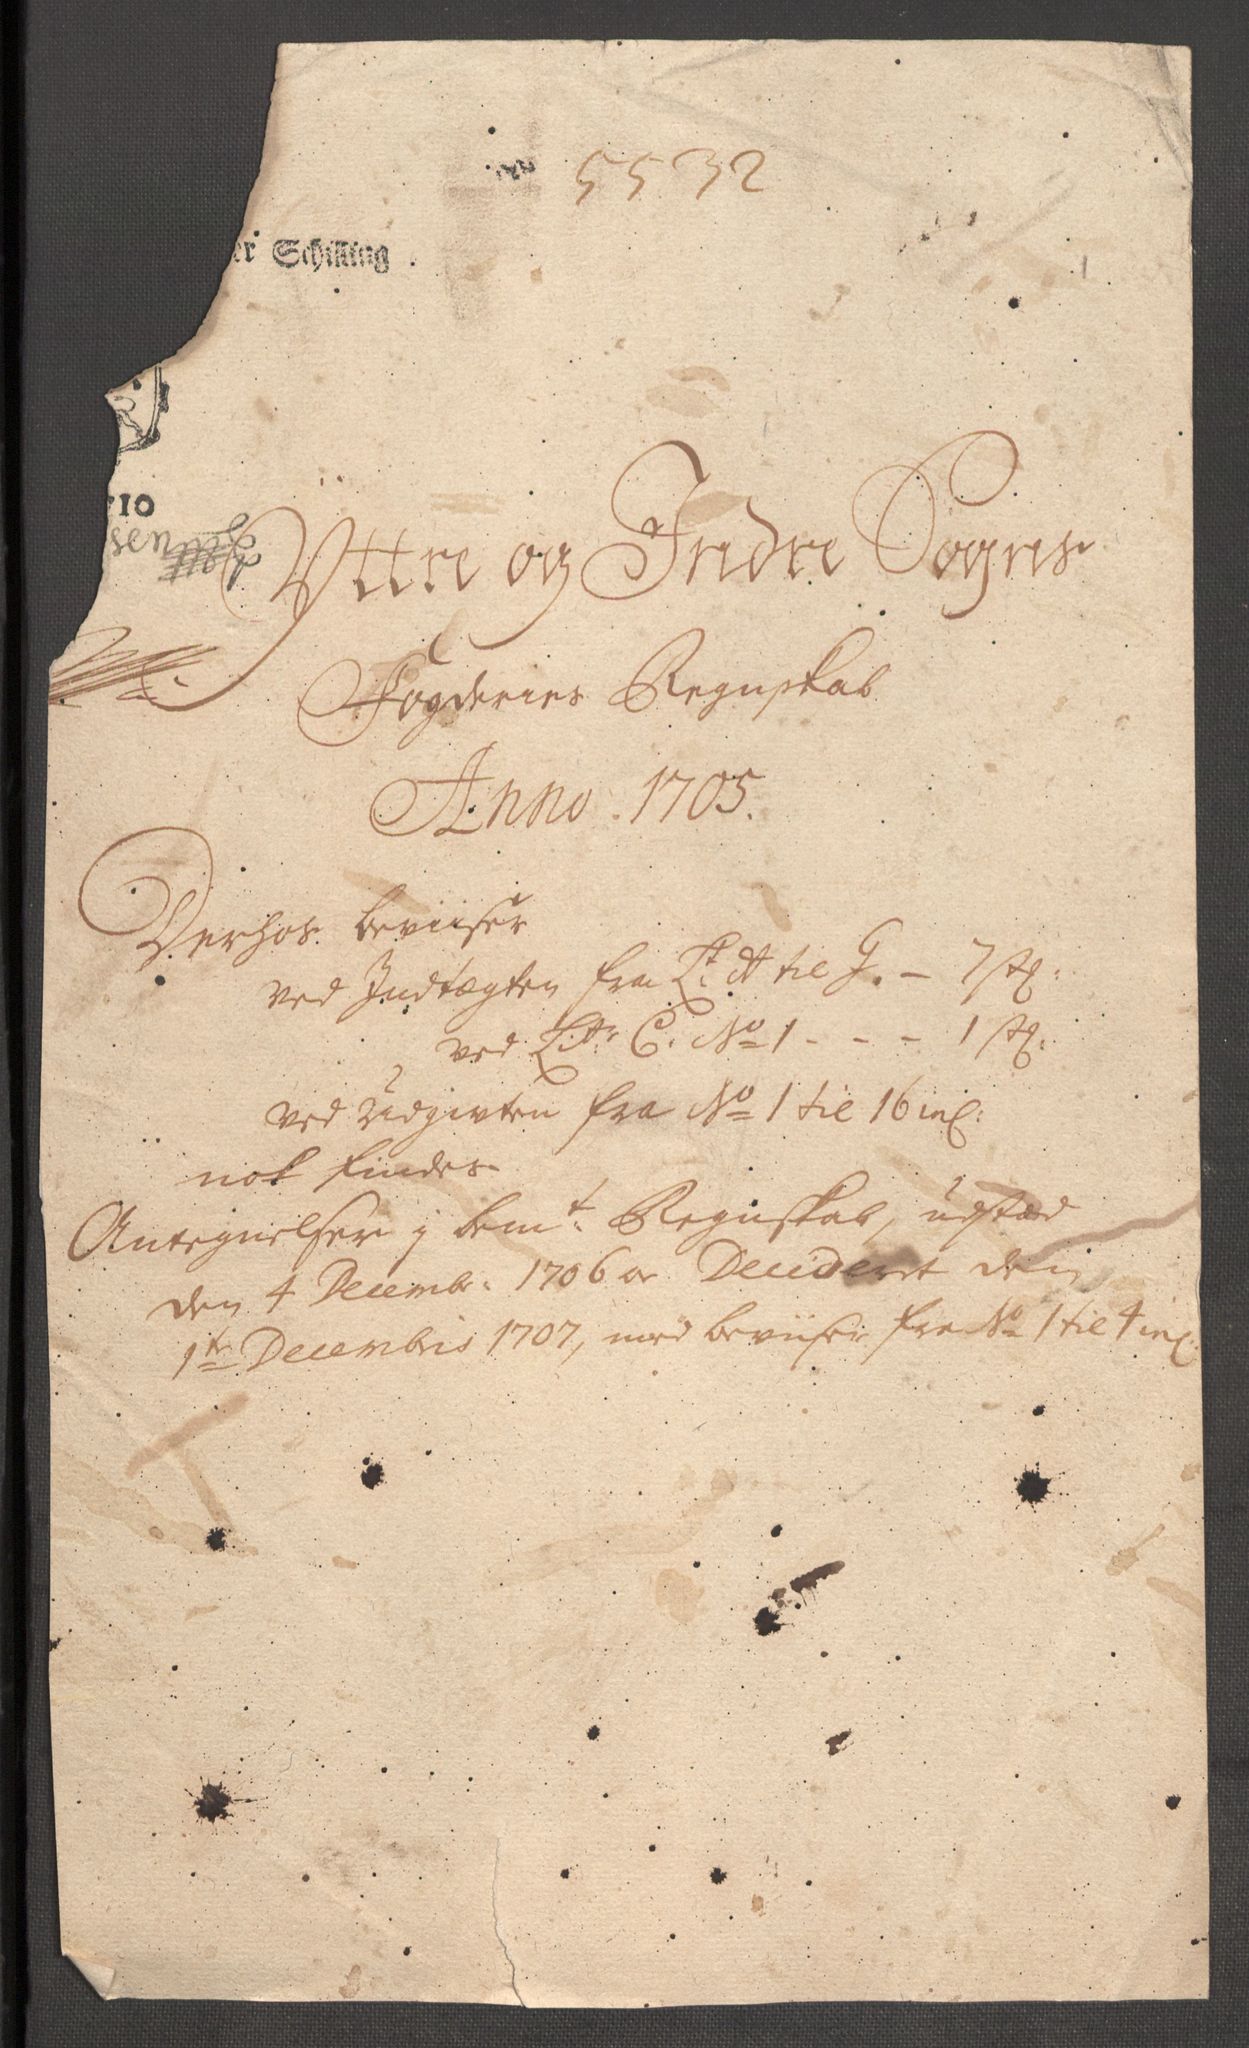 5532
er Schilling
710
sen
Yttre og Indre Sogns
Fogderies Regnskab
Anno. 1705.
Derhos beviiser
ved Indtægten fra Lt. A til G. - 7 st:
ved Littr C. No 1 - - - 1 st:
ved Udgivten fra No 1 til 16 incl:
nok findes
Antegnelser j bemt. Regnskab, udstæd
den 4 Decembr. 1706 oc Decideret den
1te Decembris 1707, med beviiser fra No 1 til 4 incl.